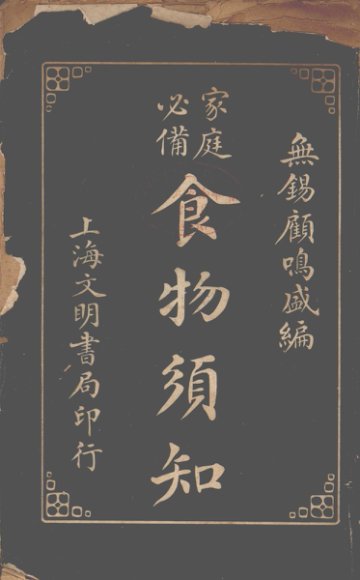 無錫顧鳴盛編
家庭
必備
食物須知
上海文明書局印行